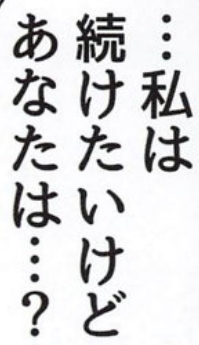 …私は
続けたいけど
あなたは…？